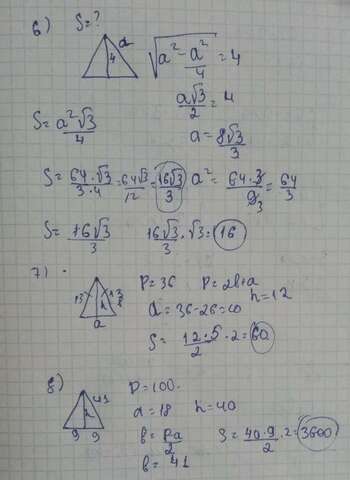 6) S=?
a
4
√(a² - a²/4) = 4
a√3/2 = 4
S = a²√3/4
a = 8√3/3
S = 64·√3/3·4 = 64√3/12 = 16√3/3
a² = 64·3/9₃ = 64/3
S = 16√3/3
16√3/3 · √3 = 16
7)
13 h 13
a
P = 36 P = 2b+a
h = 12
a = 36-26 = 10
S = 12·5/2 · 2 = 60
8)
41
h
9 9
P = 100
a = 18 h = 40
b = P-a/2
S = 40·9/2 · 2 = 3600
b = 41